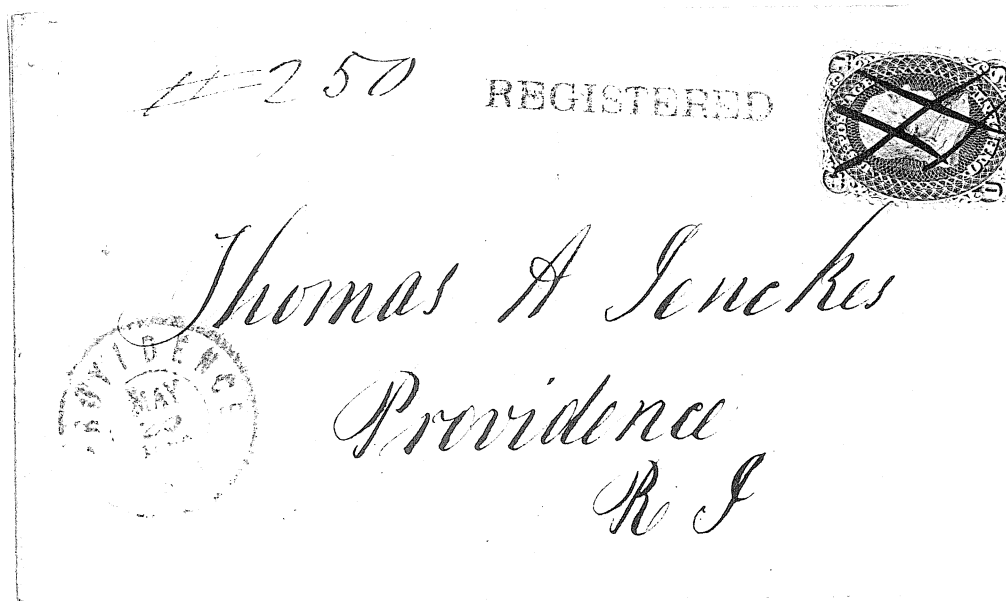 # 250 REGISTERED
Thomas A Jenckes
PROVIDENCE
MAY
Providence
R I